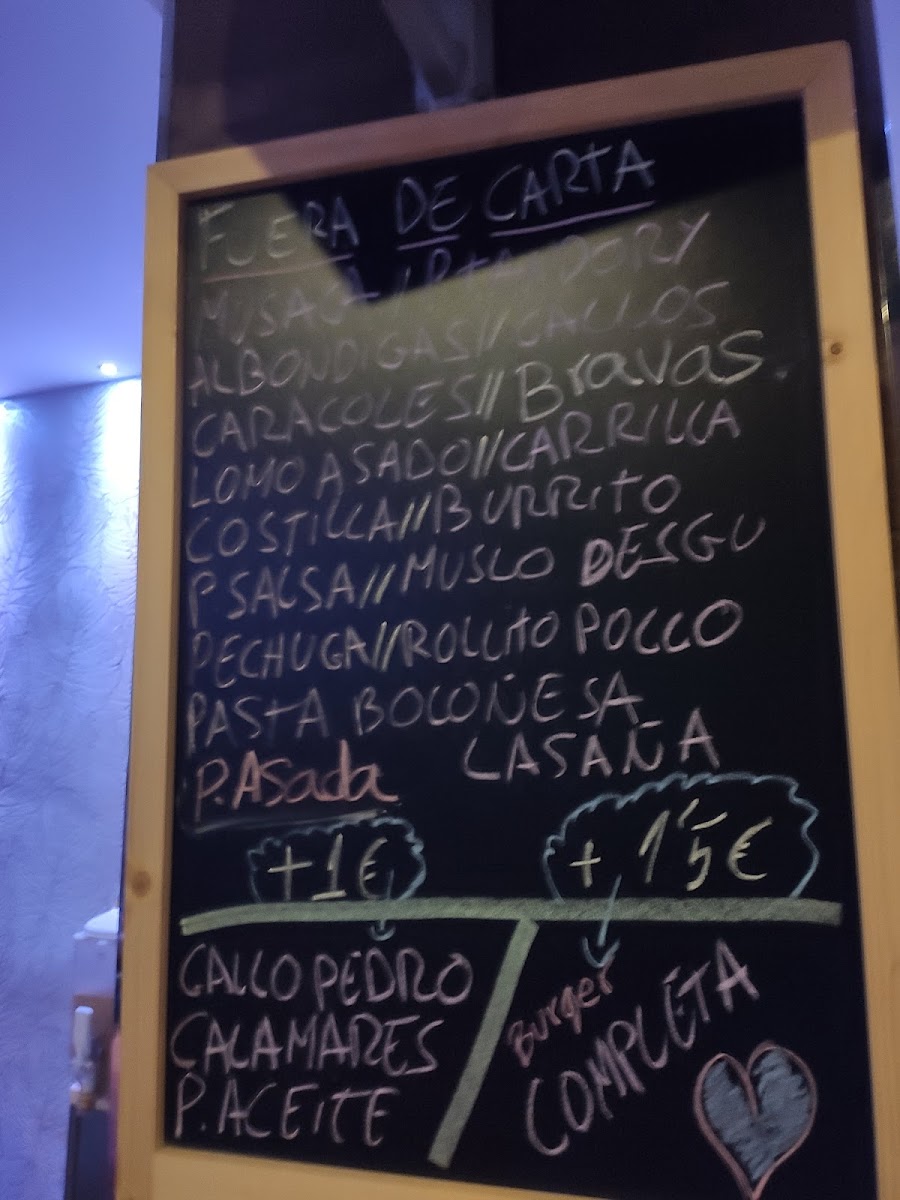 FUERA DE CARTA
MUSACA // P.TANDORY
ALBONDIGAS // CALLOS
CARACOLES // Bravas
LOMO ASADO // CARRILLA
COSTILLA // BURRITO
P SALSA // MUSLO DESGU
PECHUGA // ROLLITO POLLO
PASTA BOLOÑESA
P.ASada LASAÑA
+1€ + 1'5€
GALLO PEDRO
CALAMARES
P.ACEITE
Burger
COMPLETA